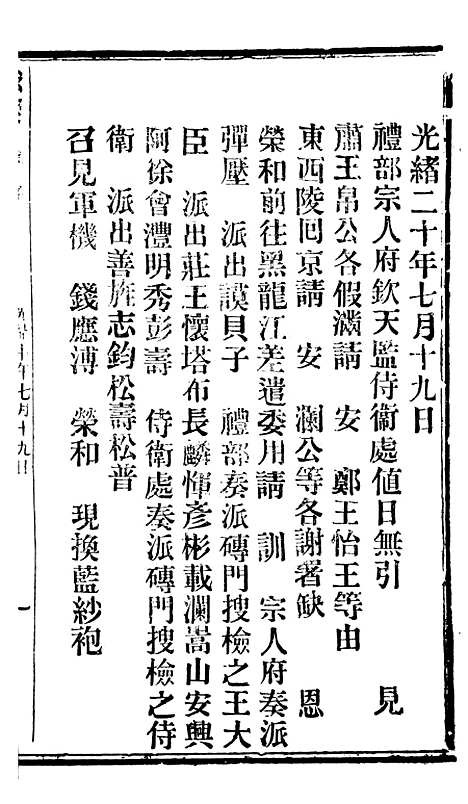 光緒二十年七月十九日
禮部宗人府欽天監侍衞處値日無引　　見
肅王帛公各假滿請　安　鄭王怡王等由
東西陵囘京請　安　瀾公等各謝署缺　恩
榮和前往黑龍江差遣委用請　訓　宗人府奏派
彈壓　派出謨貝子　禮部奏派磚門搜檢之王大
臣　派出莊王懷塔布長麟惲彥彬載瀾嵩山安興
阿徐會灃明秀彭壽　侍衞處奏派磚門搜檢之侍
衞　派出善旌志鈞松壽松普
召見軍機　錢應溥　榮和　現換藍紗袍
年七月十九日
一